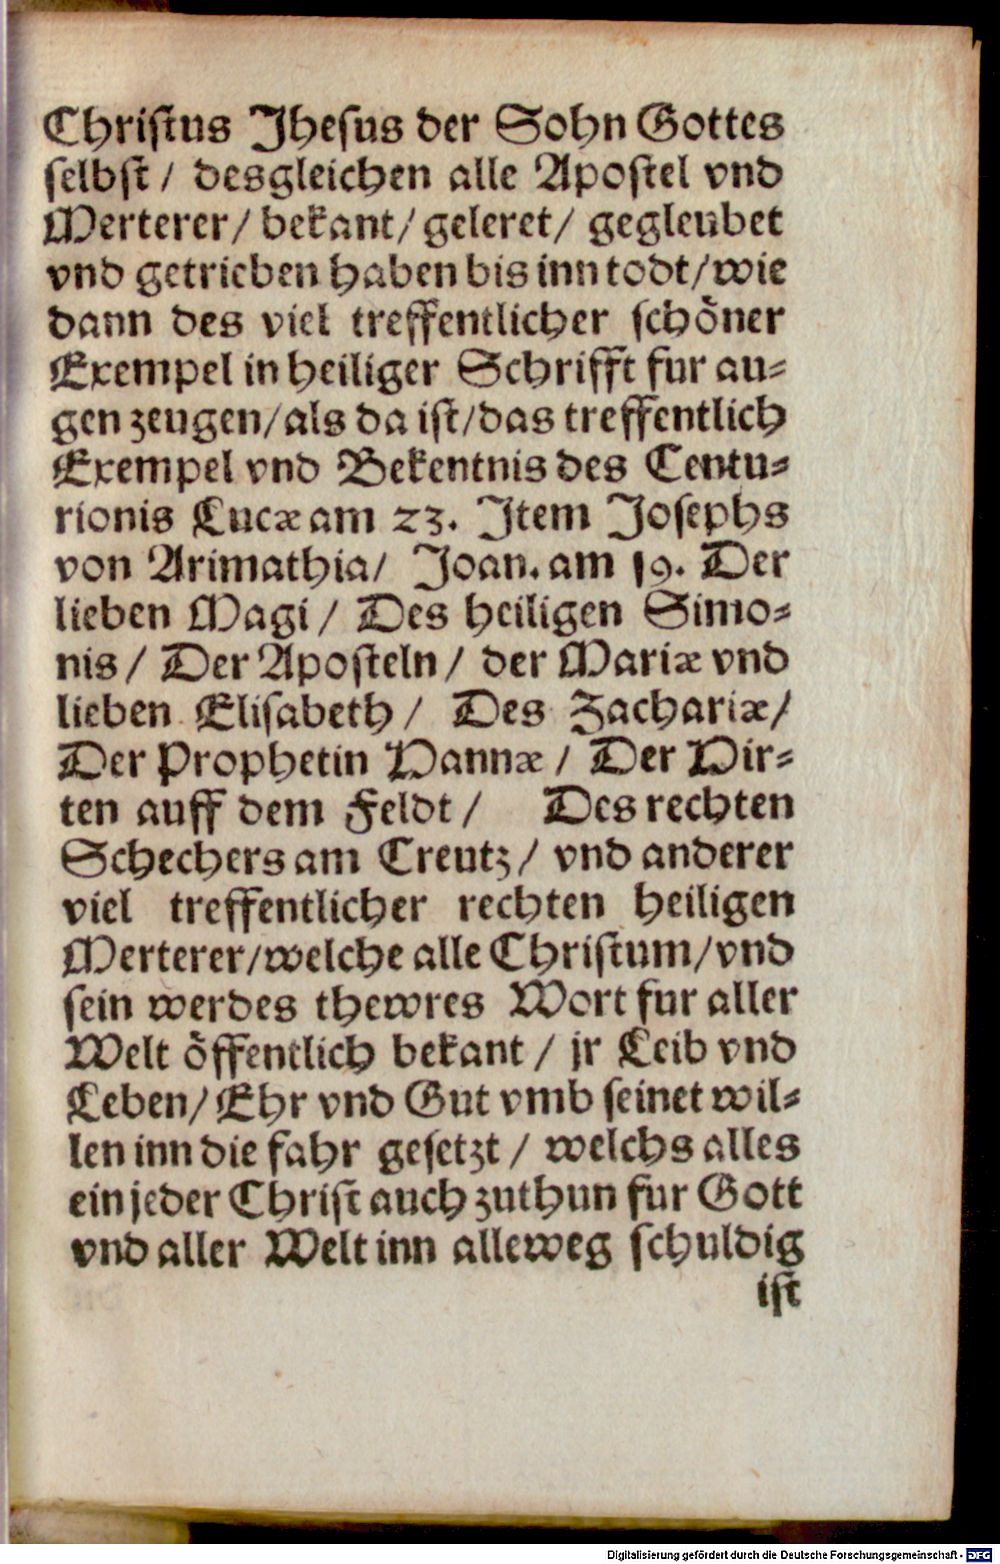 Christus Jhesus der Sohn Gottes
selbst / desgleichen alle Apostel vnd
Merterer / bekant / geleret / gegleubet
vnd getrieben haben bis inn todt / wie
dann des viel treffentlicher schöner
Exempel in heiliger Schrifft fur au-
gen zeugen / als da ist / das treffentlich
Exempel vnd Bekentnis des Centu-
rionis Lucæ am 23. Jtem Josephs
von Arimathia / Joan. am 19. Der
lieben Magi / Des heiligen Simo-
nis / Der Aposteln / der Mariæ vnd
lieben Elisabeth / Des Zachariæ /
Der Prophetin Hannæ / Der Hir-
ten auff dem Feldt / Des rechten
Schechers am Creutz / vnd anderer
viel treffentlicher rechten heiligen
Merterer / welche alle Christum / vnd
sein werdes thewres Wort fur aller
Welt öffentlich bekant / jr Leib vnd
Leben / Ehr vnd Gut vmb seinet wil-
len inn die fahr gesetzt / welchs alles
ein jeder Christ auch zuthun fur Gott
vnd aller Welt inn alleweg schuldig
ist
Digitalisierung gefördert durch die Deutsche Forschungsgemeinschaft - DFG